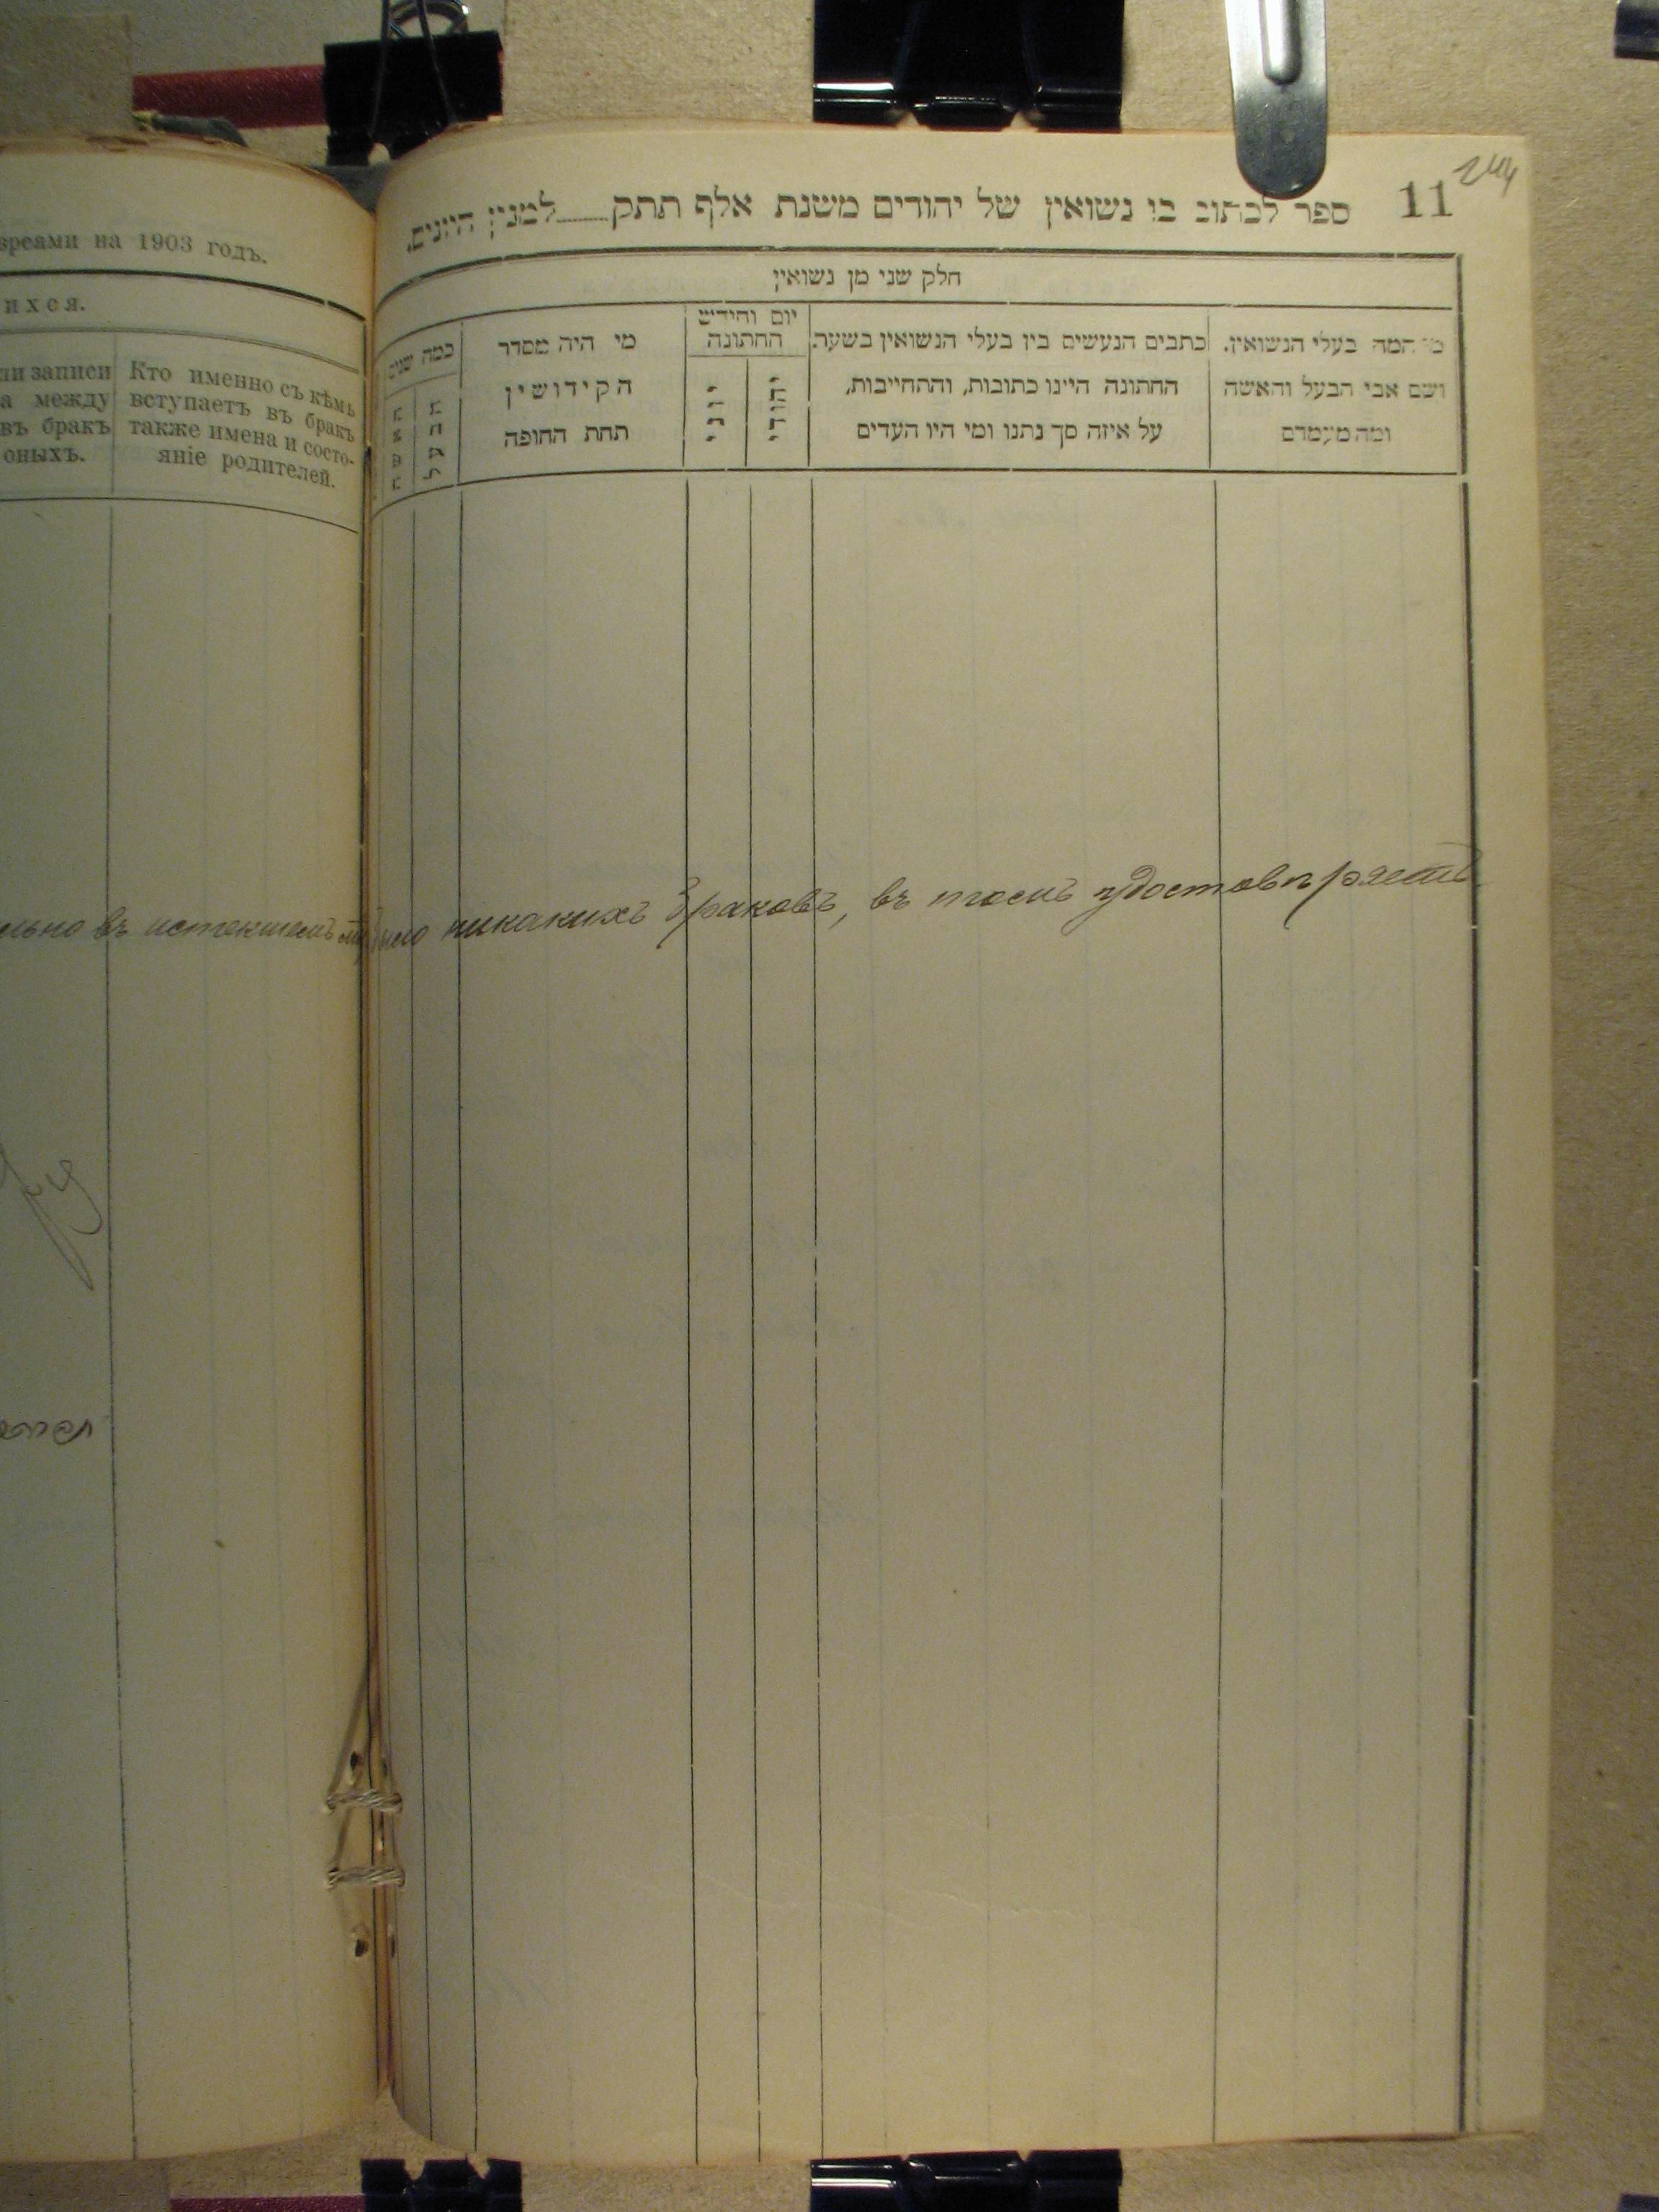 вреями на 1903 годъ.
ихся.
ли записи
а между
въ бракъ
оныхъ.
Кто именно съ кѣмъ
вступаетъ въ бракъ
также имена и состо-
яніе родителей.
244
11
ספר לכתוב בו נשואין של יהודים משנת אלף תתק למנין היונים.
חלק שני מן נשואין
המה בעלי הנשואין.
ושם אבי הבעל והאשה
ומה מעמדם
כתבים הנעשים בין בעלי הנשואין בשעת
החתונה היינו כתובות, והתחייבות,
על איזה סך נתנו ומי היו העדים
יום וחודש
החתונה
יהודי
יוני
מי היה מסדר
הקידושין
תחת החופה
כמה שנים
льно въ истекшемъ было никакихъ браковъ, въ томъ удостовѣряетъ